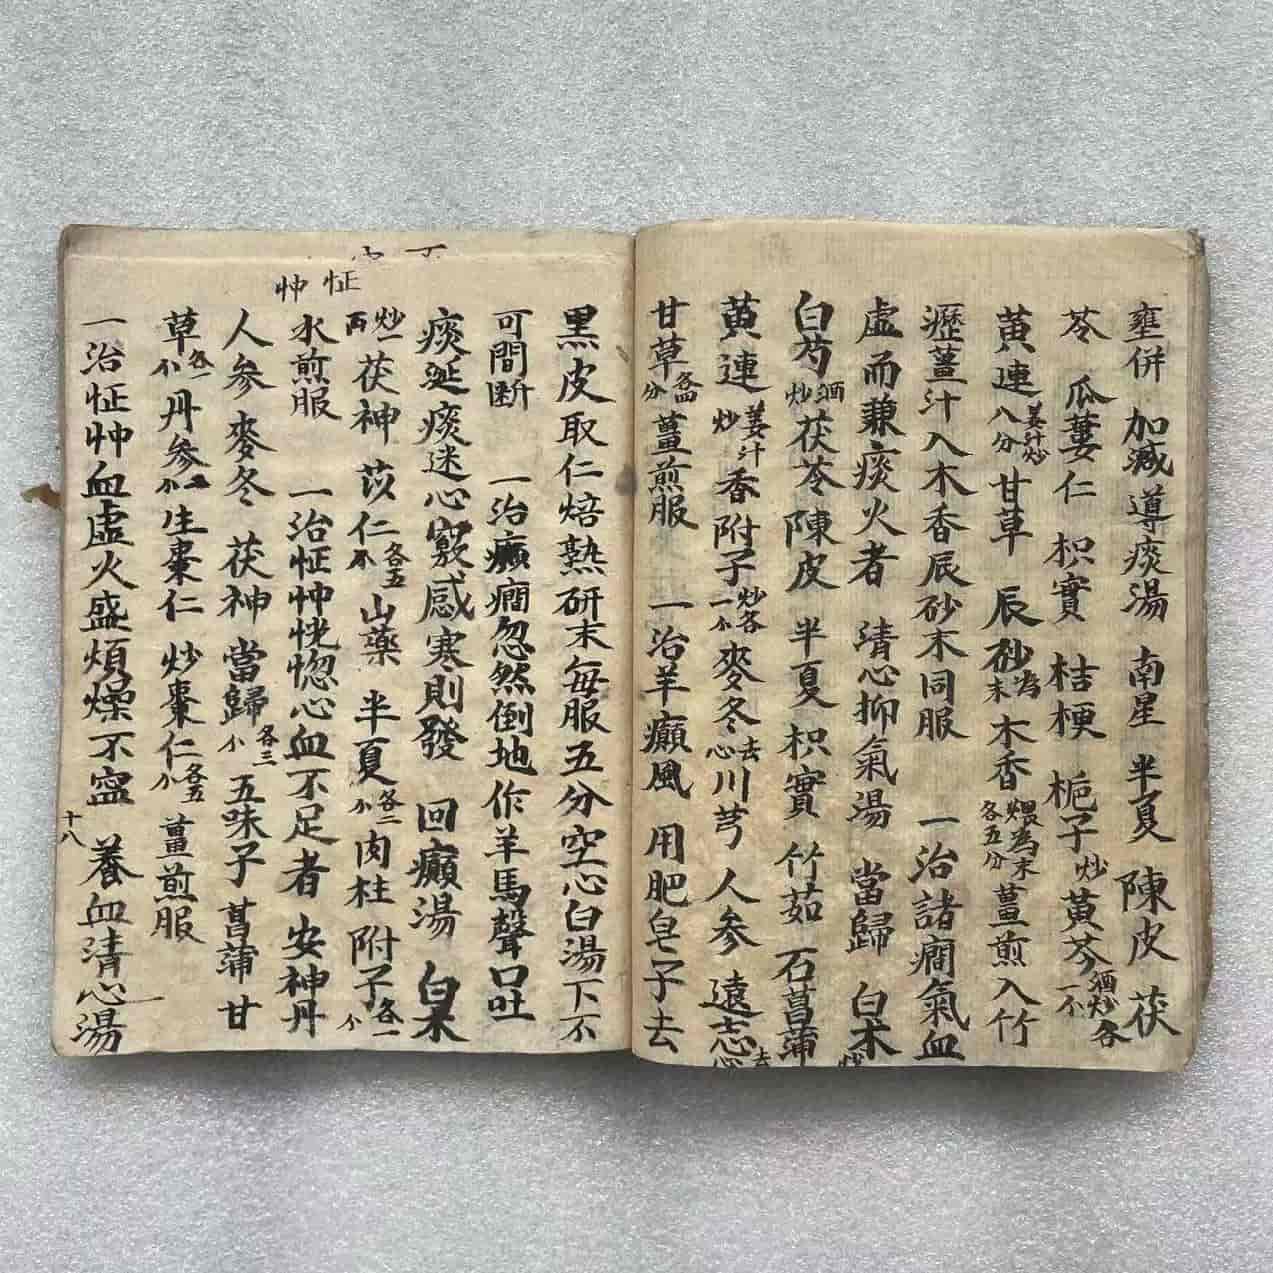 壅併 加減導痰湯 南星 半夏 陳皮 茯
苓 瓜蔞仁 枳實 桔梗 梔子炒 黄芩酒炒各一個
黄連姜汁炒八分 甘草 辰砂為末 木香煨為末各五分 薑煎入竹
瀝薑汁入木香辰砂末同服 一治諸癇氣血
虚而兼痰火者 清心抑氣湯 當歸 白朮炒
白芍酒炒 茯苓 陳皮 半夏 枳實 竹茹 石菖蒲
黄連姜汁炒 香附子炒各一个 麥冬去心 川芎 人参 遠志去心
甘草各四分 薑煎服 一治羊癲風 用肥皂子去
黑皮取仁焙熟研末每服五分空心白湯下不
可間断 一治癲癇忽然倒地作羊馬聲口吐
痰涎痰迷心竅感寒則發 回癲湯 白朮
炒一两 茯神 苡仁各五个 山藥 半夏各二个 肉桂 附子各一个
水煎服 一治怔忡恍惚心血不足者 安神丹
人参 麥冬 茯神 當歸各三个 五味子 菖蒲 甘
草各一个 丹参二个 生棗仁 炒棗仁各五个 薑煎服
一治怔忡血虚火盛煩燥不寧 養血清心湯
怔忡
十八